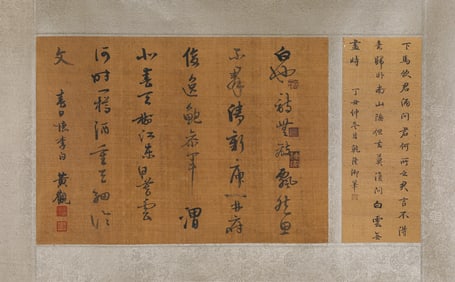 下馬飲君酒問君何所之君言不得
意歸卧南山陲但去莫復問白雲無
盡時 丁丑仲冬月乾隆御筆
白也詩無敵飄然思
不羣清新庾開府
俊逸鮑參軍渭
北春天樹江東日暮雲
何時一樽酒重與細論
文 春日憶李白 黃觀